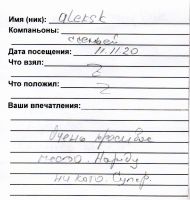 Имя (ник): aleksk
Компаньоны:
семьей
Дата посещения: 11.11.20
Что взял: Z
Что положил: Z
Ваши впечатления:
Очень красивое
место. Народу
никого. Супер.